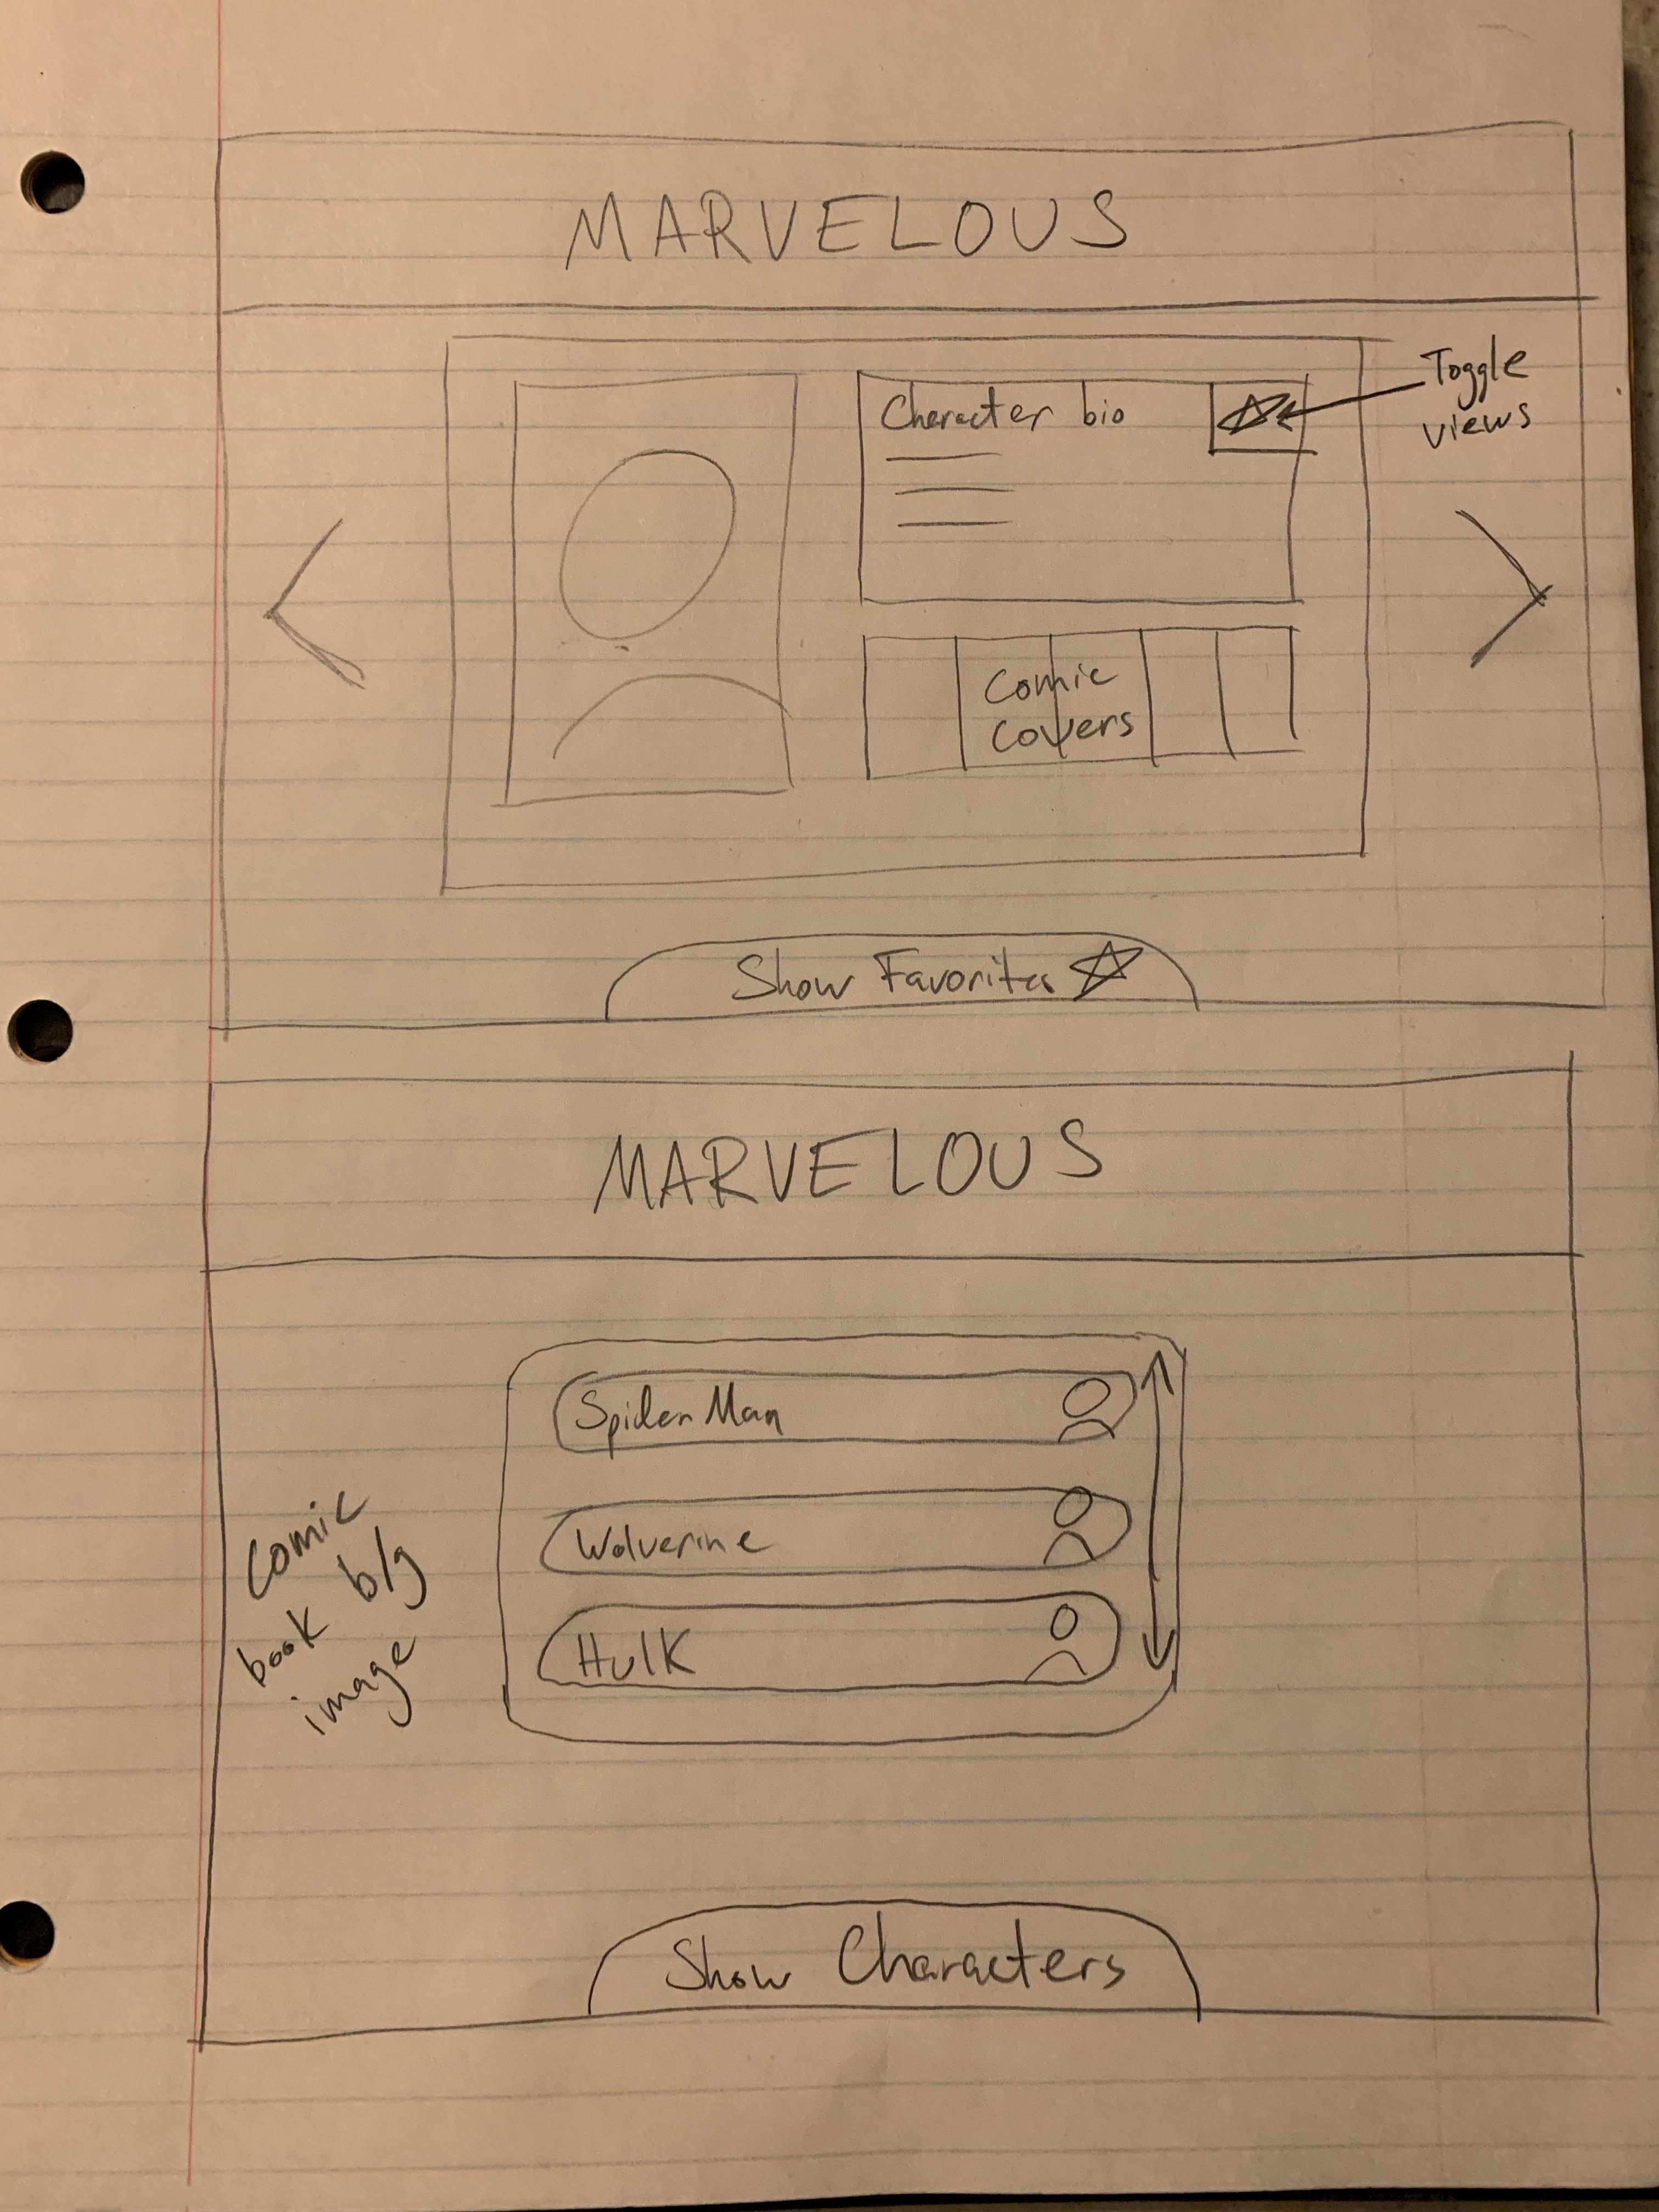 MARVELOUS
Character bio
Toggle
views
Comic
Covers
Show Favorites
MARVELOUS
Spider Man
Wolverine
Hulk
Comic
book b/g
image
Show Characters